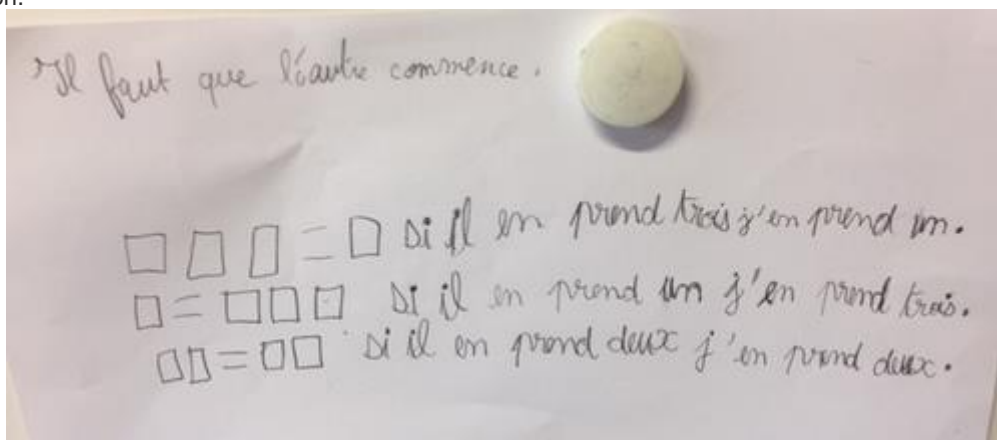 Il faut que l'autre commence.
□ □ □ = □ si il en prend trois j'en prend un.
□ = □□□ si il en prend un j'en prend trois.
□□ = □□ si il en prend deux j'en prend deux.